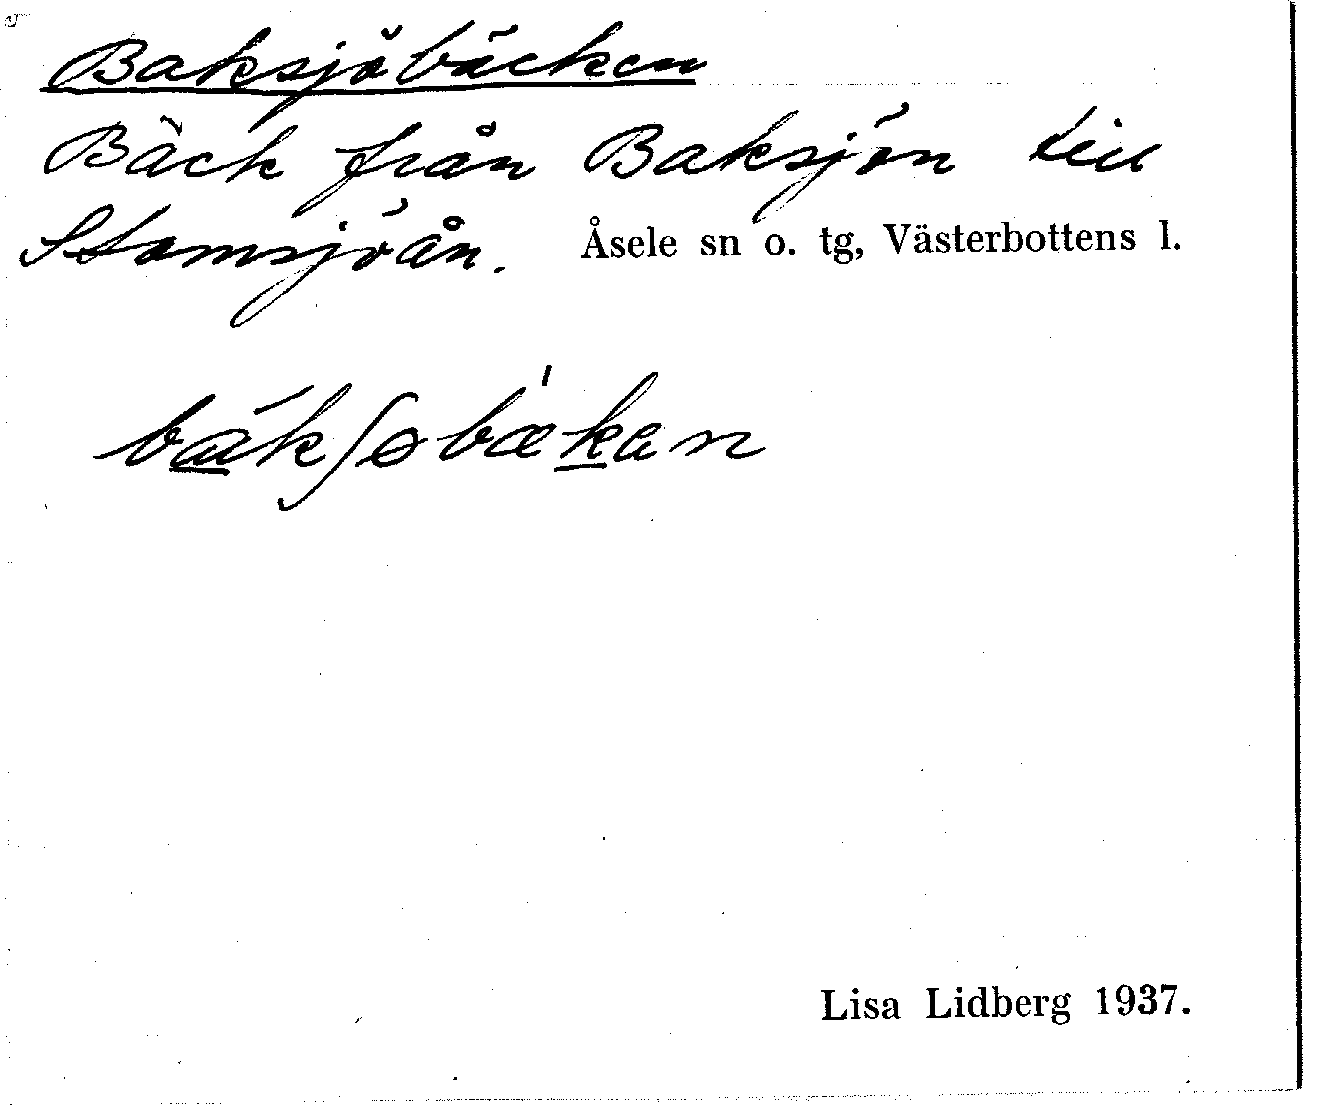 Baksjöbäcken
Bäck från Baksjön till
Stomsjöån. Åsele sn o. tg, Västerbottens l.
bákʃɵbæ'kan
Lisa Lidberg 1937.